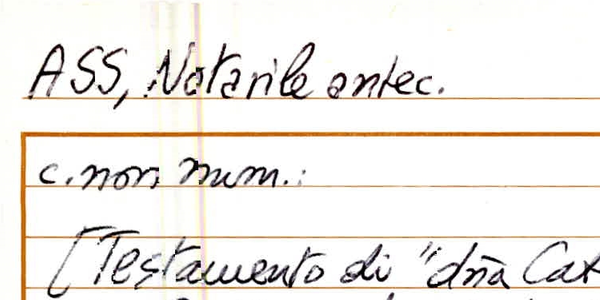 ASS, Notarile antec.
c. non num.:
[Testamento di "dña Cat